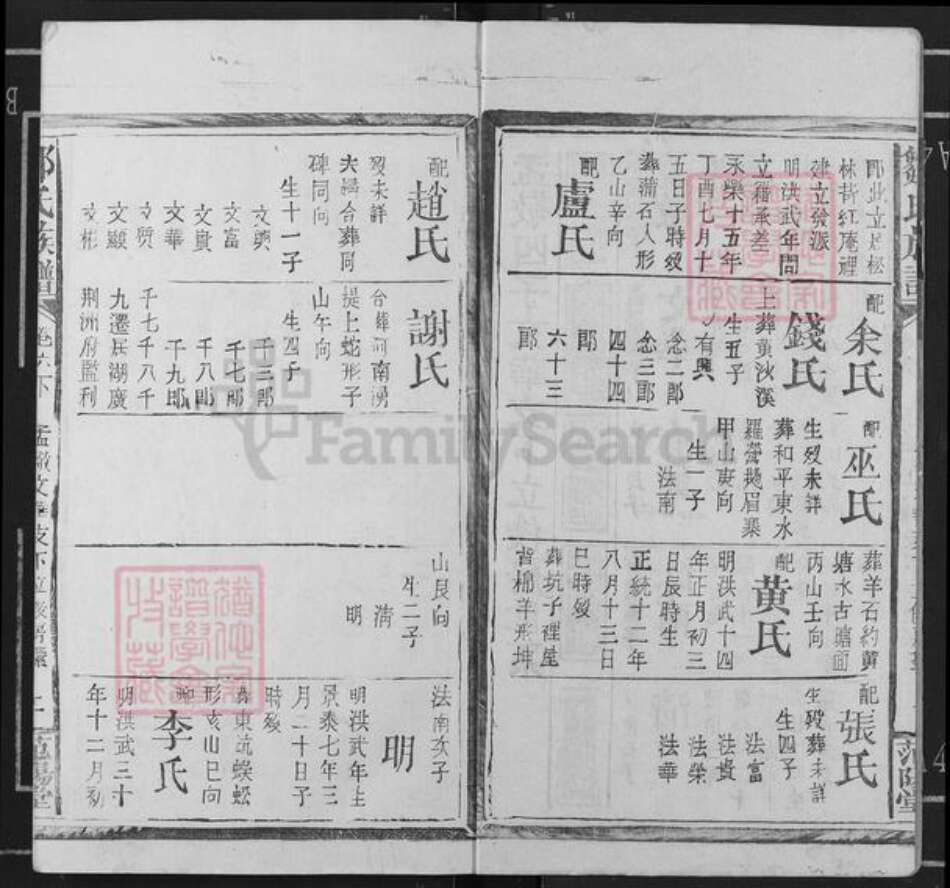 卽此立居松
林背紅庵裡
建立發派
明洪武年間
立籍承差
永樂十五年
丁酉七月十
五日子時歿
葬蒲石人形
乙山辛向
配
盧氏
配
余氏
錢氏
上葬黃沙溪
生五子
有興
念二郎
念三郎
四十四
郎
六十三
郎
配
巫氏
生歿未詳
葬和平東水
甲山庚向
生一子
法南
葬羊石約黃
塘水古塘面
丙山壬向
配
黃氏
明洪武十四
年正月初三
日辰時生
正統十二年
八月十三日
巳時歿
葬坑子裡屋
背棉羊形坤
配
張氏
生歿葬未詳
生四子
法富
法貴
法榮
法華
配
趙氏
歿未詳
夫婦合葬同
碑同向
生十一子
文奭
文富
文貴
文華
文賢
文顯
文彬
謝氏
合葬河南湧
提上蛇形子
山午向
生四子
千三郎
千七郎
千八郎
千九郎
千七千八千
九遷居湖廣
荆洲府監利
山艮向
生二子
清
明
法南次子
明
明洪武年生
景泰七年三
月二十日子
時歿
葬東坑蜈蚣
形亥山巳向
配
李氏
明洪武三十
年十二月初
鄒氏族譜
卷六下
范陽堂
FamilySearch